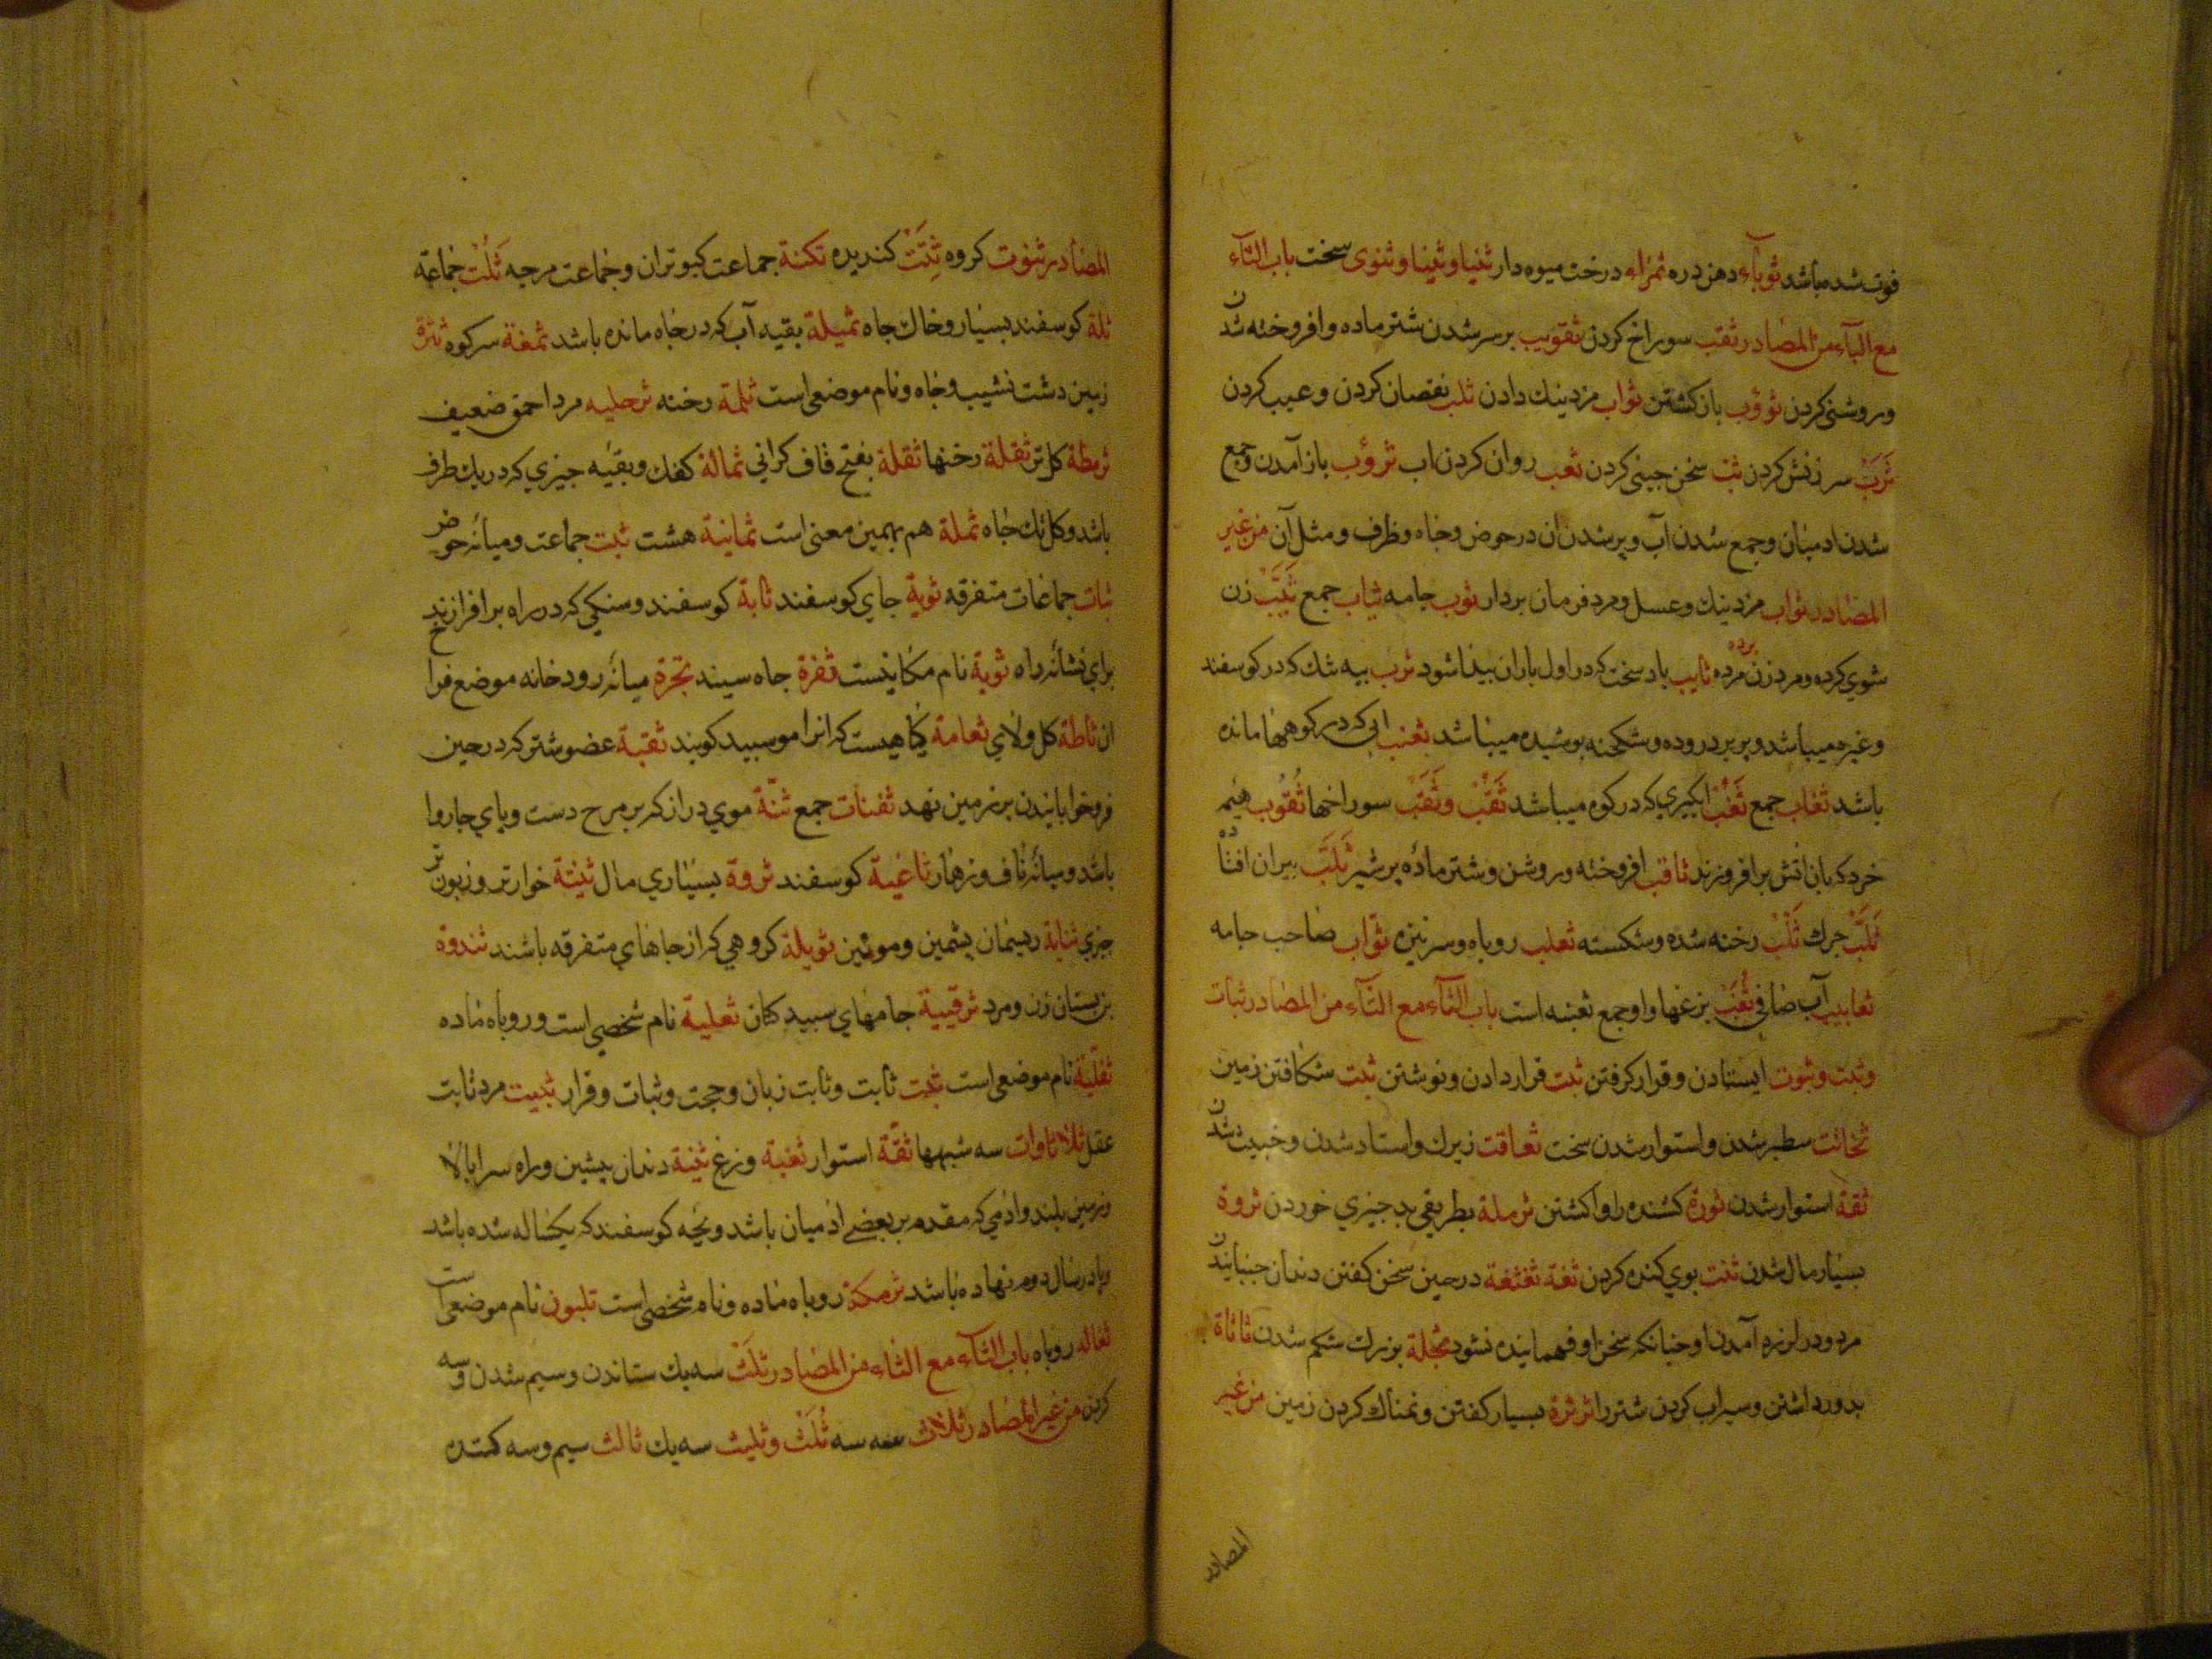 فوت شده باشد ثوبآء دهن دره ثمراء درخت میوه دار ثنیا و ثنیا و ثنوی سخت باب الثآء
مع البآء من المصادر ثقب سوراخ کردن ثقویب برسر شدن شتر ماده وافروخته شدن
وروشنی کردن ثوؤب بازکشتن ثواب مزد نیك دادن ثلب نقصان کردن وعیب کردن
ثرب سرزنش کردن سخن چینی کردن ثعب روان کردن اب ثرؤب باز آمدن وجمع
شدن ادمیان وجمع شدن آب وپر شدن ان درحوض وچاه وظرف ومثل آن من غیر
المصادر ثواب مزد نیك وعسل ومرد فرمان بردار ثوب جامه ثیاب جمع ثیّب زن
شوی کرده ومرد زن مرده برده ثایب باد سخت که در اول باران پیدا شود ثرب پیه تنك که در کوسفند
وغیره میباشد وبر بر دروده وشکمبه پوشیده میباشد ثعنب ابی که در کوهها مانده
باشد ثغاب جمع ثغب ابکیری که در کوه میباشد ثقب وثقب سوراخها ثقوب هیم
خرد که بان اتش برافروزند ثاقب افروخته وروشن وشتر ماده پرشیر ثلب پیران افتاده
ثلب چرك ثلب رخنه شده وشکسته ثعلب روباه وسر نیزه ثوّاب صاحب جامه
ثعابیب آب صافی بزغها واو جمع ثعبه است باب الثآء مع التآء من المصادر ثبات
وثبت وثبوت ایستادن وقرار کرفتن ثبت قرار دادن ونوشتن ثبت شکافتن زمین
ثخانت سطبر شدن واستوار شدن سخت ثعاقت زیرك واستاد شدن وخبیث شدن
ثقة استوار شدن ثورة کشنده را واکشتن ثرملة بطریقی بد چیزی خوردن ثروة
بسیار مال شدن ثنت بوی کنده کردن ثغة ثغثغة درحین سخن کفتن دندان جنبانیدن
مرد ودر لرزه آمدن او چنانکه سخن او فهمانیده نشود ثجلة بزرك شکم شدن ثاثاة
بدور داشتن وسیراب کردن شتر را ثرثرة بسیار کفتن ونمناك کردن زمین من غیر
المصادر
المصادر ثبوت کروه ثتت کندیده ثکنة جماعت کبوتران وجماعت مرچه ثلت جماعة
ثلة کوسفند بسیار وخاك چاه ثمیلة بقیه آب که در چاه مانده باشد ثمغة سر کوه ثبرة
زمین دشت نشیب وچاه ونام موضعی است ثلمة رخنه ثرحلیه مرد احمق ضعیف
ثرمطة کل تر ثقلة رخنها ثقلة بفتح قاف کرانی ثمالة کفك وبقیّه چیزی که در یك طرف
باشد وکل تك چاه ثملة هم بهمین معنی است ثمانیة هشت ثبت جماعت ومیانه حوض
ثبات جماعات متفرقه ثویة جای کوسفند ثابة کوسفند وسنکی که در راه برافرازند
برای نشانه راه ثویة نام مکانیست ثغرة چاه سینه ثجرة میانه رودخانه موضع فرا
ان ثاطة کل ولای ثغامة کیاهیست که انرا موسپید کویند ثفنة عضو شتر که درحین
فروخوابانیدن بر زمین نهد ثفنات جمع ثنّة موی دراز که بر مرح دست وپای چاروا
باشد ومیانه ناف وزهار ثاغیة کوسفند ثروة بسیاری مال ثنیة خوارتر وزبون تر
چیزی ثنایة ریسمان پشمین وموئین ثویلة کروهی که از جاهای متفرقه باشند ثندوة
بز پستان زن ومرد ثرقبیة جامهای سپید کتان ثعلبة نام شخصی است وروباه ماده
ثعلبیة نام موضعی است ثبت ثابت وثابت زبان وحجت وثبات وقرار ثبیت مرد ثابت
عقل ثلاثاوات سه شنبهها ثقة استوار ثعبة وزغ ثنیة دندان پیشین وراه سرا بالا
وزمین بلند وادمی که مقدم بر بعضی ادمیان باشد وبچه کوسفند که یکساله شده باشد
وپا در سال دوم نهاده باشد ثرمکة روباه ماده ونام شخصی است ثلبون نام موضعی است
ثعاله روباه باب الثآء مع الثاء من المصادر ثلث سه یك ستاندن وسیم شدن وسه
کردن من غیر المصادر ثلاث سه سه ثلث وثلیث سه یك ثالث سیم وسه کننده